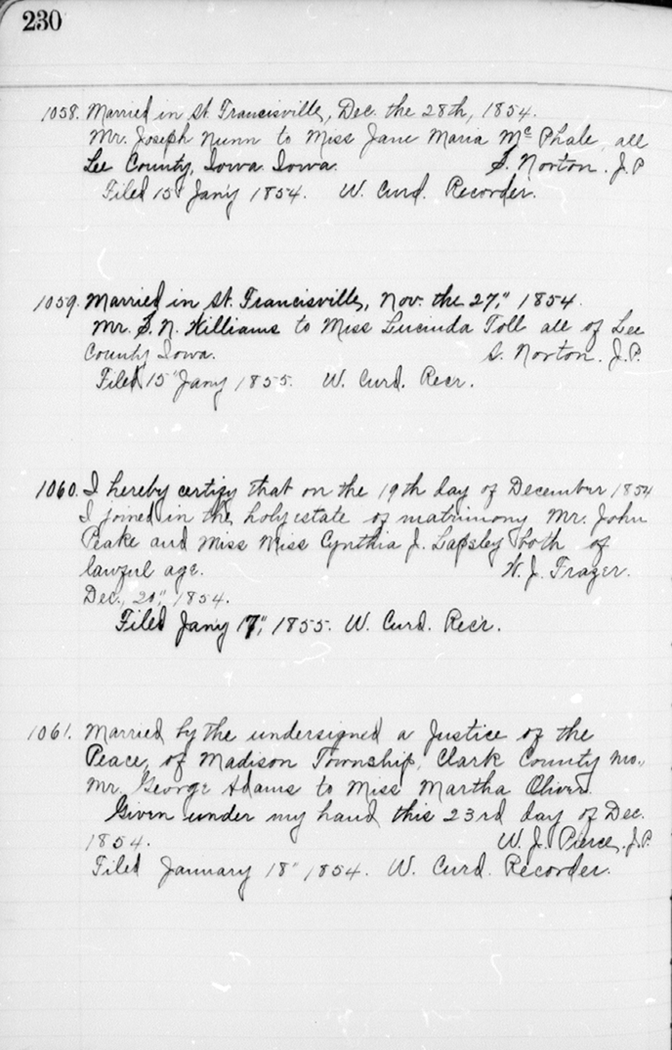 230
1058. Married in St. Francisville, Dec. the 28th, 1854.
Mr. Joseph Nunn to Miss Jane Maria McPhale, all
Lee County, Iowa. Iowa. S. Norton. J.P
Filed 15" Jan'y 1854. W. Curd. Recorder.
1059. Married in St. Francisville, Nov. the 27," 1854.
Mr. S. N. Williams to Miss Lucinda Toll all of Lee
County Iowa. S. Norton. J.P.
Filed 15" Jany 1855. W. Curd. Recr.
1060. I hereby certify that on the 19th day of December 1854
I joined in the holy estate of matrimony Mr. John
Peake and Miss Miss Cynthia J. Lapsley both of
lawful age. W. J. Frazer.
Dec., 20", 1854.
Filed Jan'y 17", 1855. W. Curd. Rec'r.
1061. Married by the undersigned a Justice of the
Peace, of Madison Township, Clark County Mo.,
Mr. George Adams to Miss Martha Oliver.
Given under my hand this 23rd day of Dec.
1854. W. J. Pierce, J.P.
Filed January 18" 1854. W. Curd. Recorder.